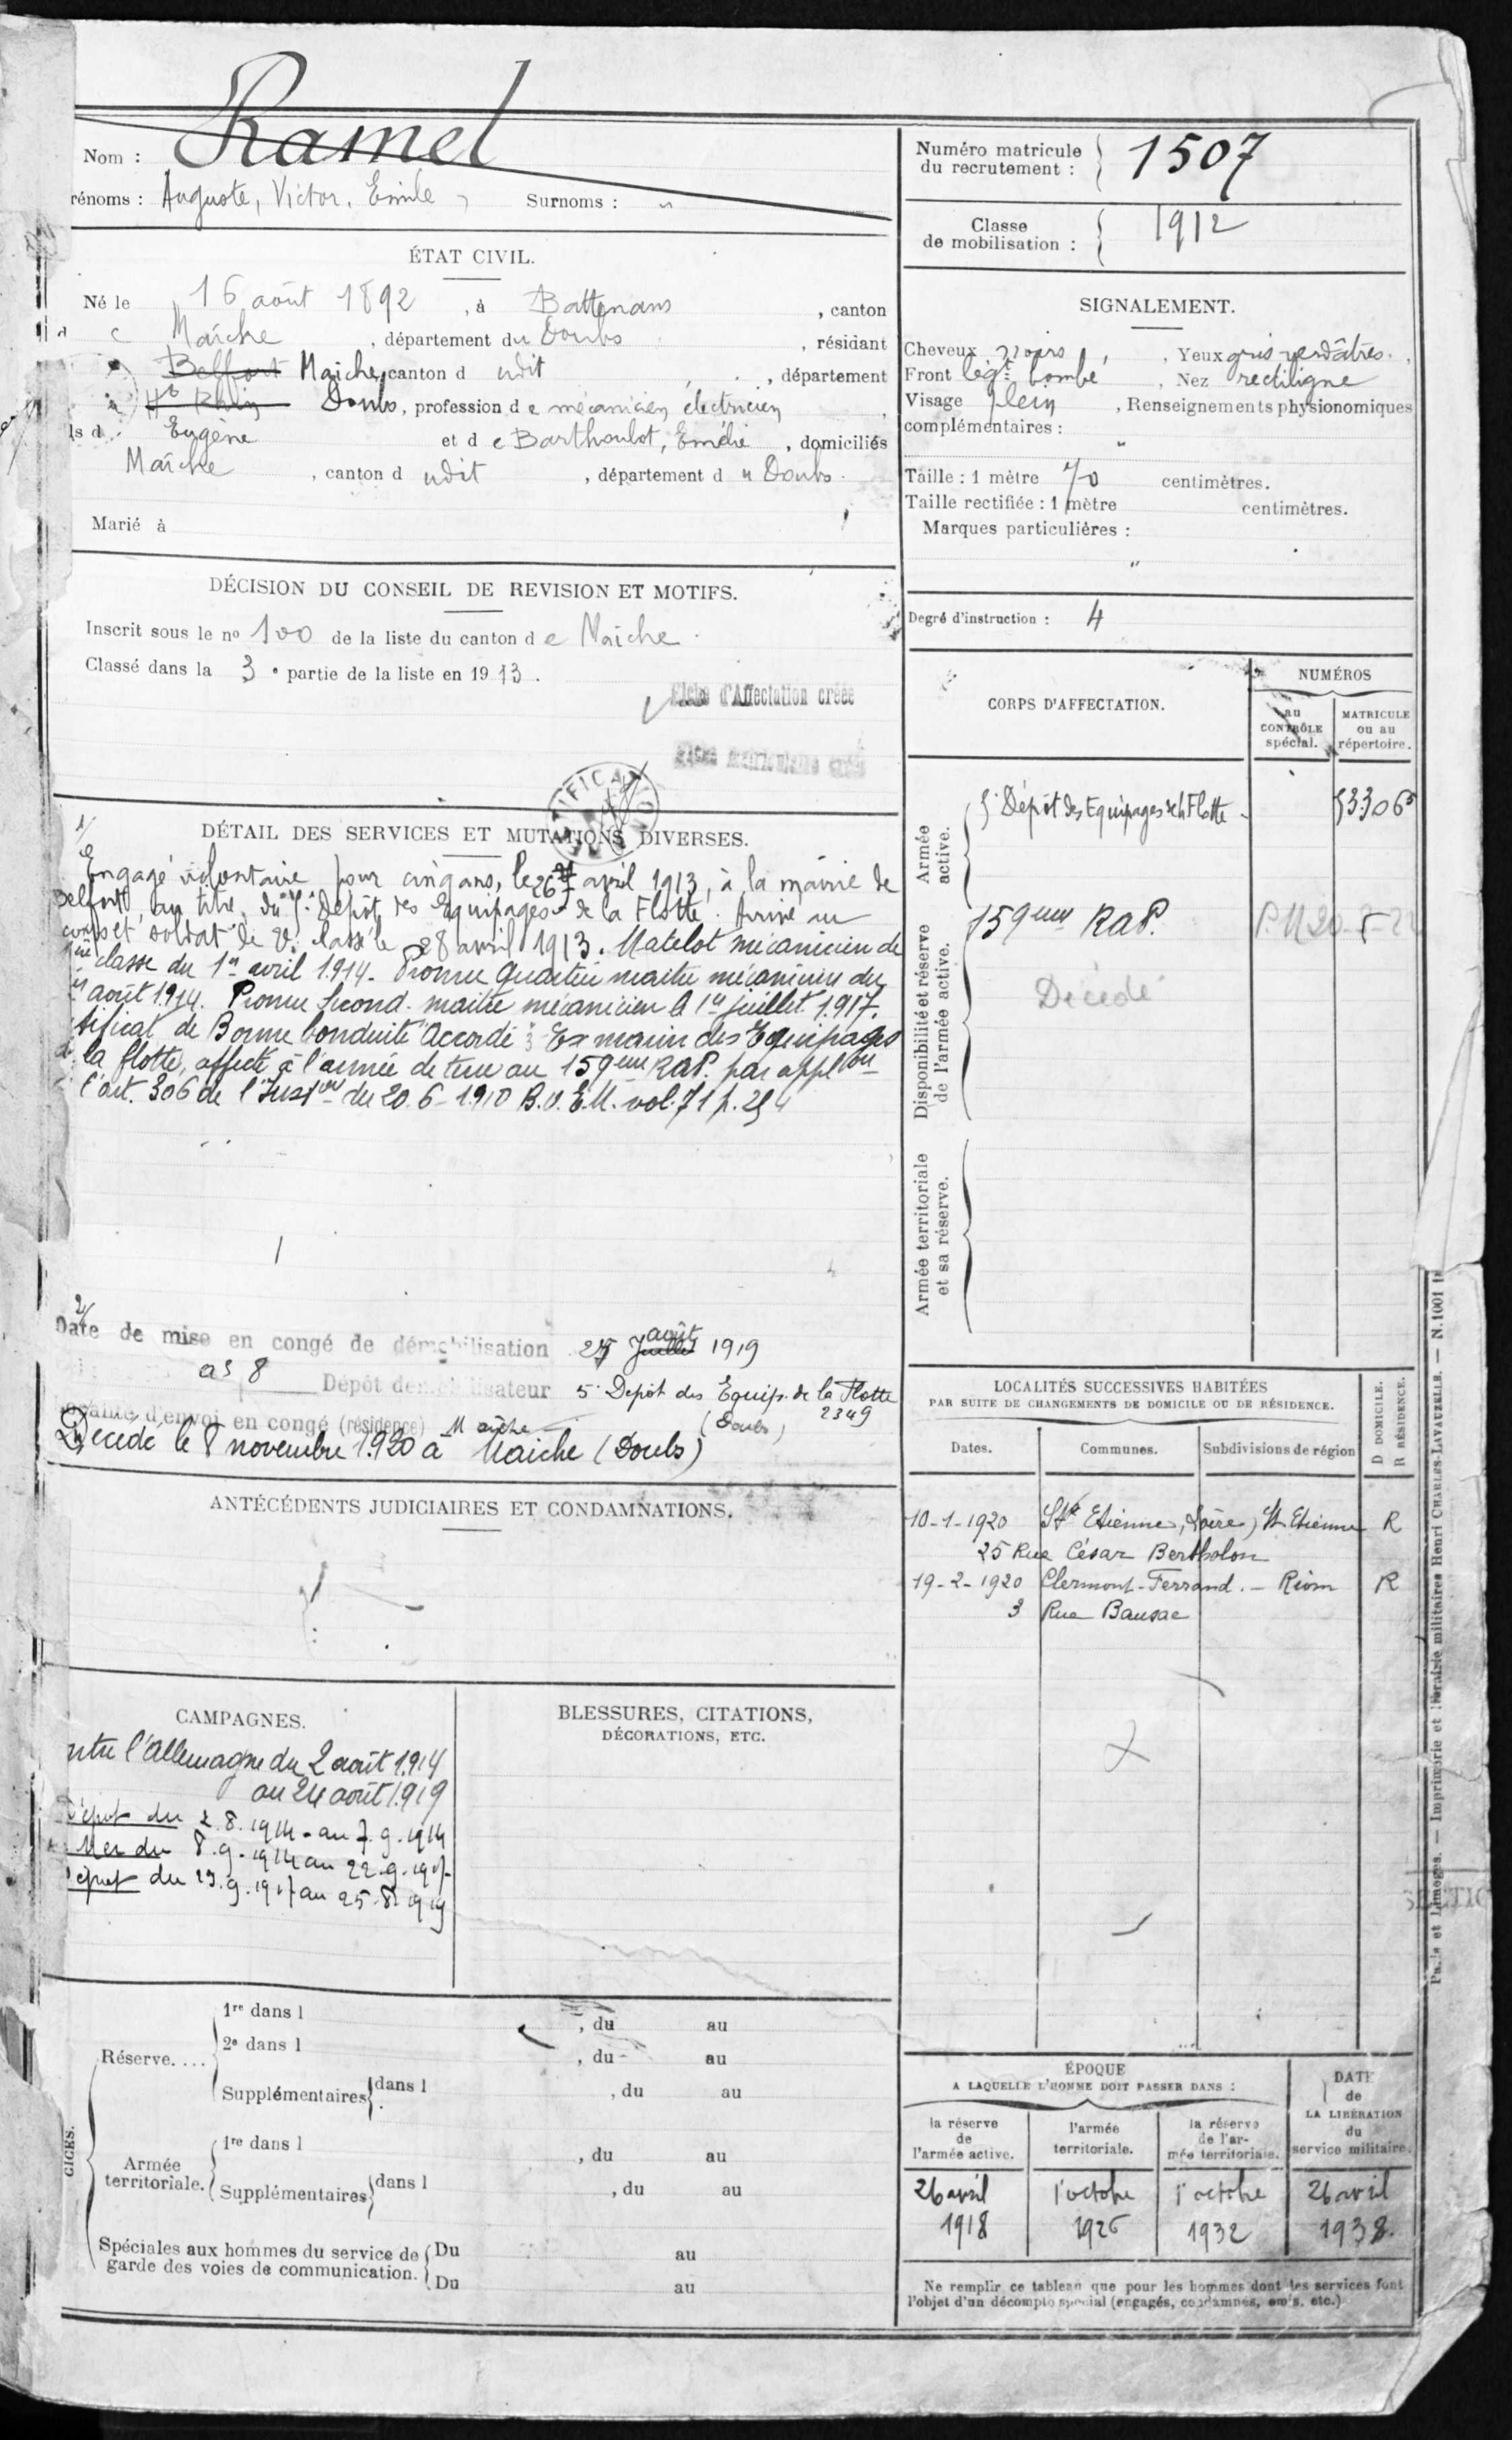 Ramel
Nom :
rénoms : Auguste, Victor, Emile, Surnoms : "
ÉTAT CIVIL.
Né le 16 août 1892, à Battenans, canton
Maîche, département du Doubs, résidant
Belfort Maiche, canton d udit, département
Ht Rhin Doubs, profession d e mécanicien électricien
ls d Eugène et d e Barthoulot, Emélie, domiciliés
Maîche, canton d udit, département d u Doubs.
Marié à
DÉCISION DU CONSEIL DE REVISION ET MOTIFS.
Inscrit sous le no 100 de la liste du canton d e Maîche.
Classé dans la 3e partie de la liste en 1913.
Fiche d'Affectation créée
Fiche matriculaire créée
DÉTAIL DES SERVICES ET MUTATIONS DIVERSES.
1/
Engagé volontaire pour cinq ans, le 26 avril 1913, à la mairie de
Belfort, au titre du 5e Dépôt des Equipages de la Flotte. Arrivé au
corps et soldat de 2e classe le 28 avril 1913. Matelot mécanicien de
classe du 1er avril 1914. Promu Quartier maître mécanicien du
1er août 1914. Promu second-maître mécanicien le 1er juillet 1917.
tificat de Bonne Conduite "Accordé". Ex marin des Equipages
de la flotte, affecté à l'armée de terre au 159eme RAP. par applon
l'art. 306 de l'Instion du 20-6-1910 B.O. E.M. vol. 71 p. 254
2/
Date de mise en congé de démobilisation 25 Juillet août 1919
as 8 Dépôt demobilisateur 5e Depot des Equip. de la Flotte
2349
Localité d'envoi en congé (résidence) Maîche (Doubs)
Décédé le 8 novembre 1920 à Maiche (Doubs)
ANTÉCÉDENTS JUDICIAIRES ET CONDAMNATIONS.
CAMPAGNES.
ntre l'Allemagne du 2 août 1914
au 24 août 1919
Dépot du 2.8.1914 - au 7.9.1914
Mer du 8.9.1914 au 22.9.1917
épot du 23.9.1917 au 25.8.1919
BLESSURES, CITATIONS,
DÉCORATIONS, ETC.
Réserve....
1re dans l , du au
2e dans l , du au
Supplémentaires dans l , du au
CICES.
Armée
territoriale.
1re dans l , du au
Supplémentaires dans l , du au
Spéciales aux hommes du service de
garde des voies de communication.
Du au
Du au
Numéro matricule
du recrutement : 1507
Classe
de mobilisation : 1912
SIGNALEMENT.
Cheveux noirs, Yeux gris verdâtres.
Front légt bombé, Nez rectiligne
Visage plein, Renseignements physionomiques
complémentaires :
"
Taille : 1 mètre 70 centimètres.
Taille rectifiée : 1 mètre centimètres.
Marques particulières :
"
Degré d'instruction : 4
CORPS D'AFFECTATION.
NUMÉROS
au
CONTRÔLE
spécial.
MATRICULE
ou au
répertoire.
Armée
active.
5e Dépôt des Equipages de la Flotte 53306
Disponibilité et réserve
de l'armée active.
159eme RAP.
Décédé
Armée territoriale
et sa réserve.
LOCALITÉS SUCCESSIVES HABITÉES
PAR SUITE DE CHANGEMENTS DE DOMICILE OU DE RÉSIDENCE.
D DOMICILE.
R RÉSIDENCE.
Dates. Communes. Subdivisions de région
10-1-1920 St Etienne, (Loire) St Etienne R
25 Rue César Bertholon
19-2-1920 Clermont-Ferrand. - Riom R
3 Rue Bansac
ÉPOQUE
A LAQUELLE L'HOMME DOIT PASSER DANS :
DATE
de
LA LIBÉRATION
du
service militaire.
la réserve
de
l'armée active.
l'armée
territoriale.
la réserve
de l'ar-
mée territoriale.
26 avril 1er octobre 1er octobre 26 avril
1918 1926 1932 1938.
Ne remplir ce tableau que pour les hommes dont les services font
l'objet d'un décompte spécial (engagés, condamnés, omis, etc.)
Paris et Limoges. — Imprimerie et librairie militaires Henri CHARLES-LAVAUZELLE. — N. 1001